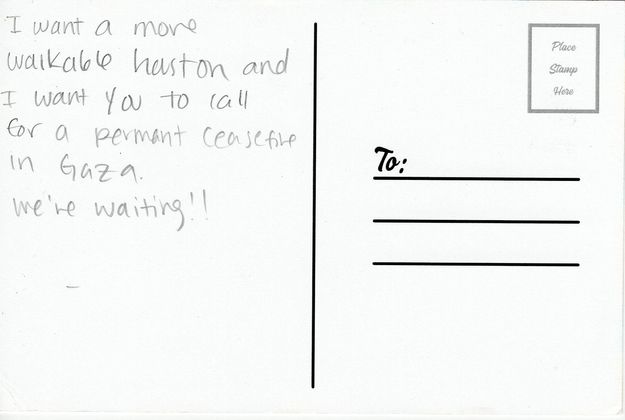 I want a more
walkable hoston and
I want you to call
for a permant ceasefire
in Gaza.
We're waiting!!
Place
Stamp
Here
To: